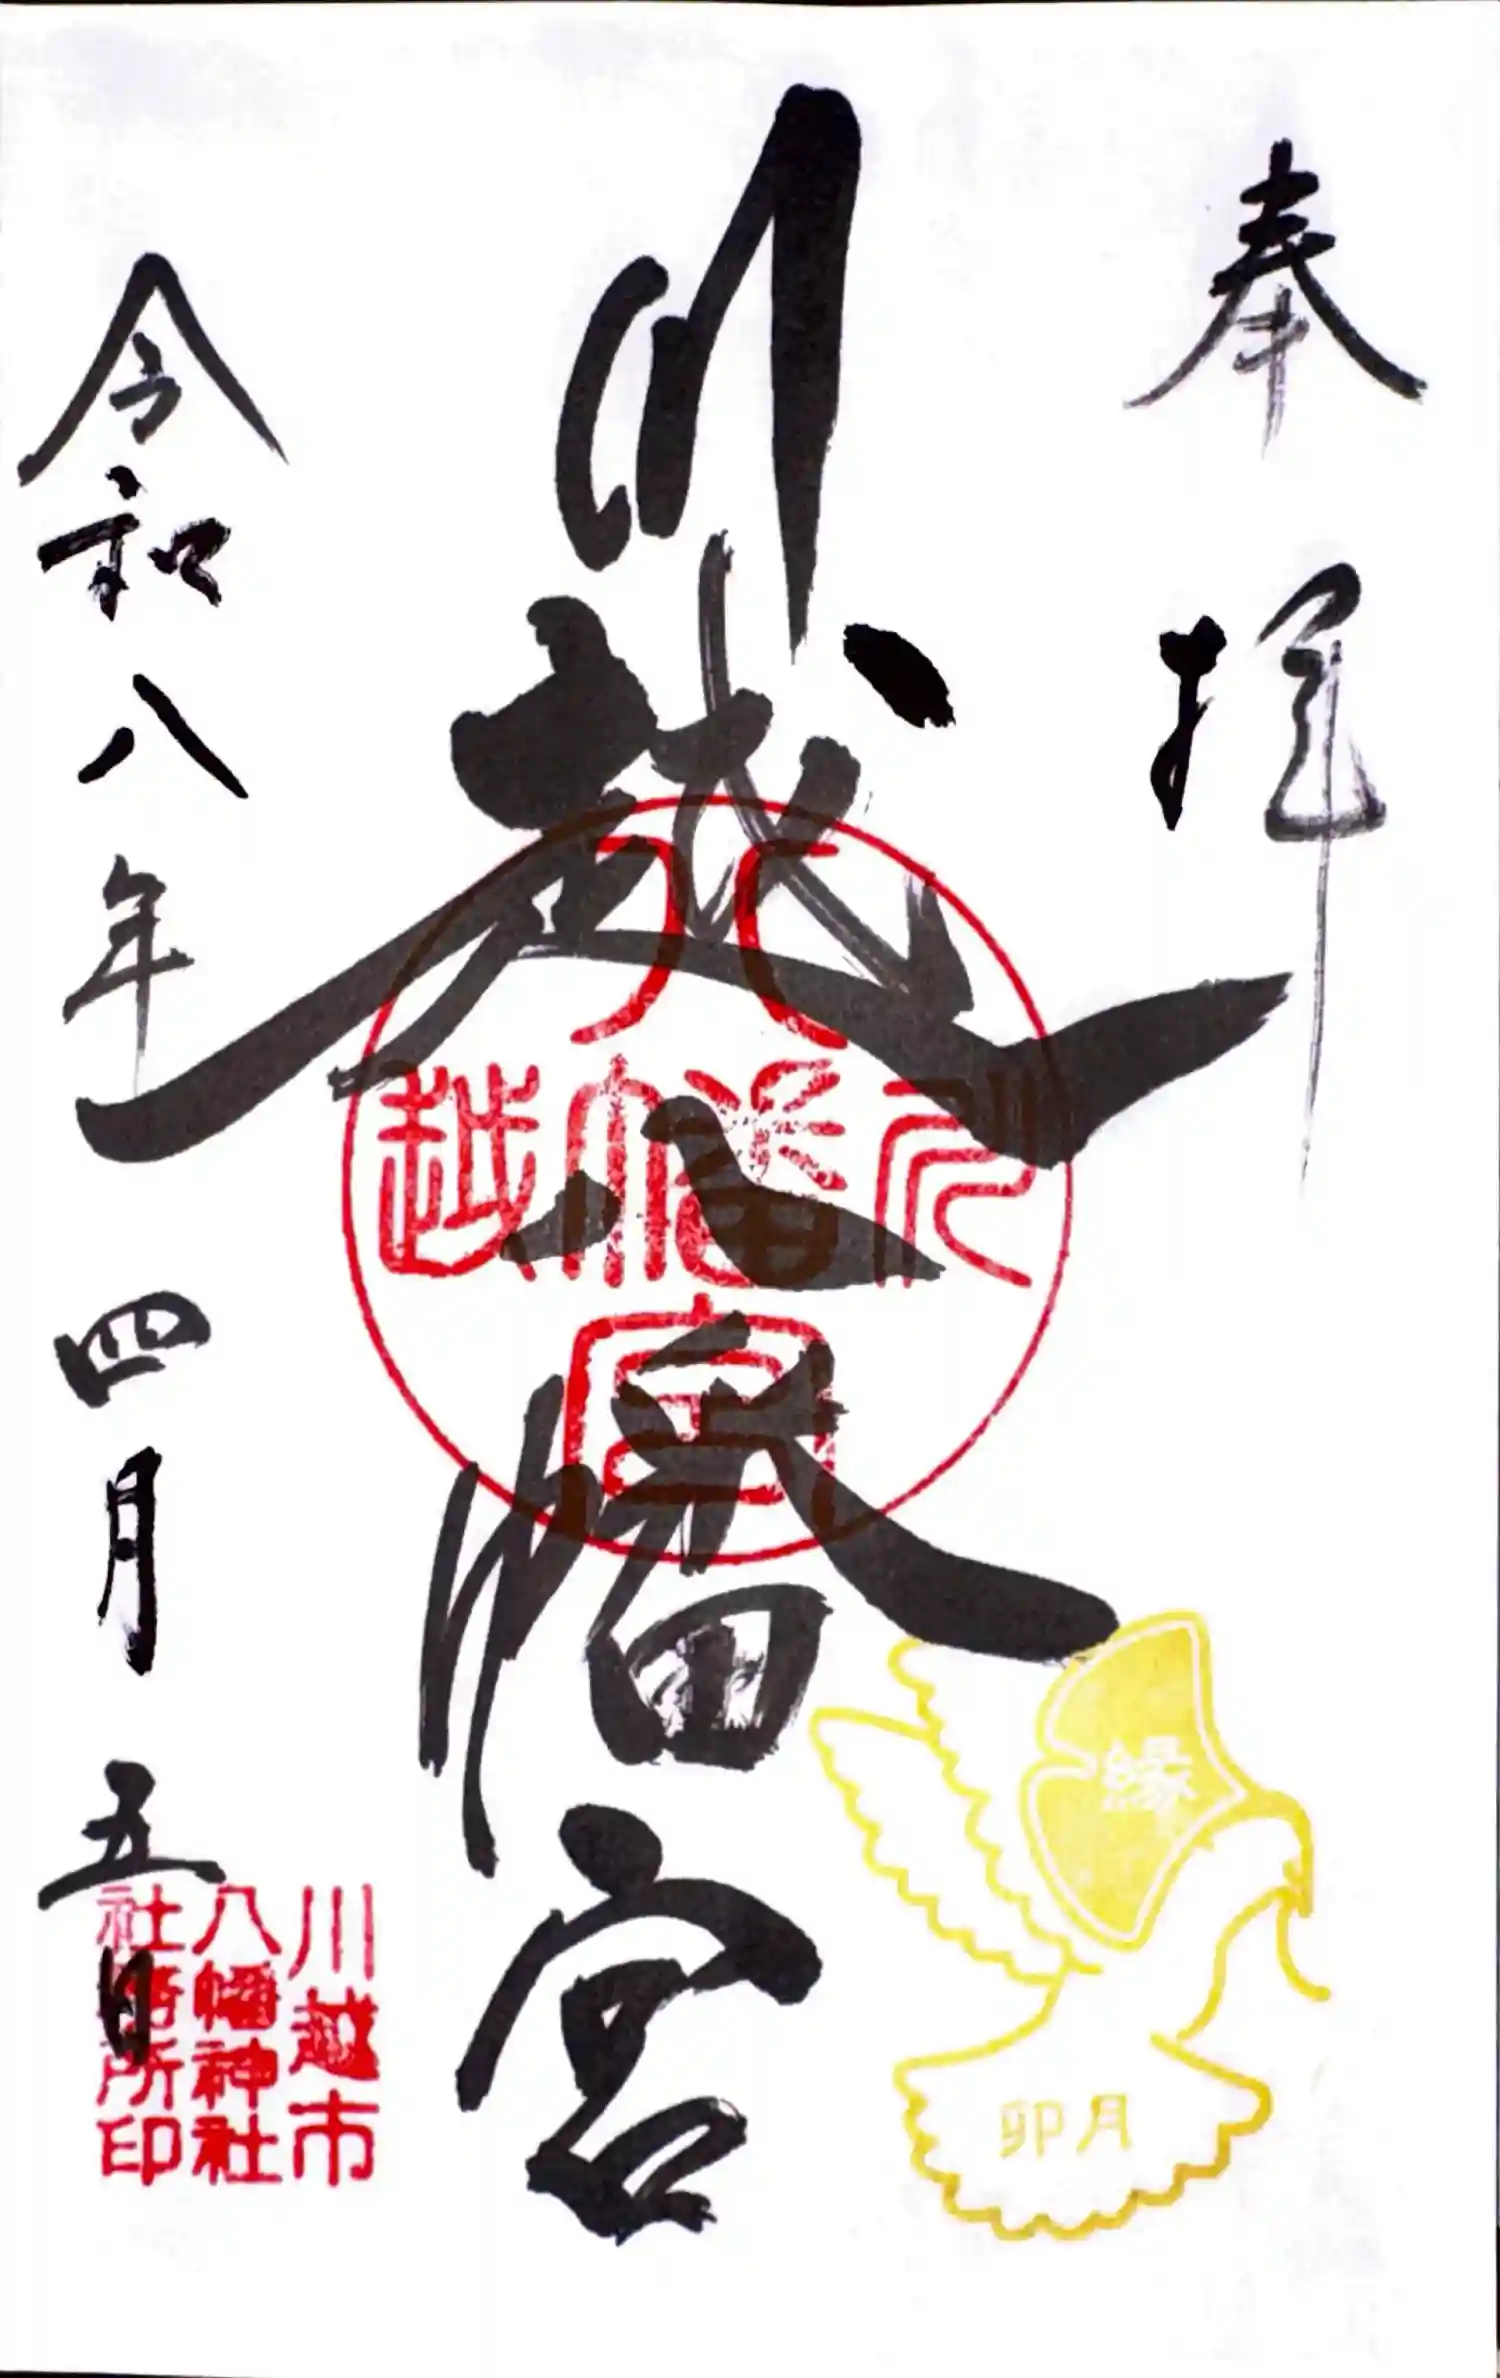 奉拝
川越八幡宮
八
川幡越
宮
縁
卯月
川越市
八幡神社
社務所印
令和八年四月五日